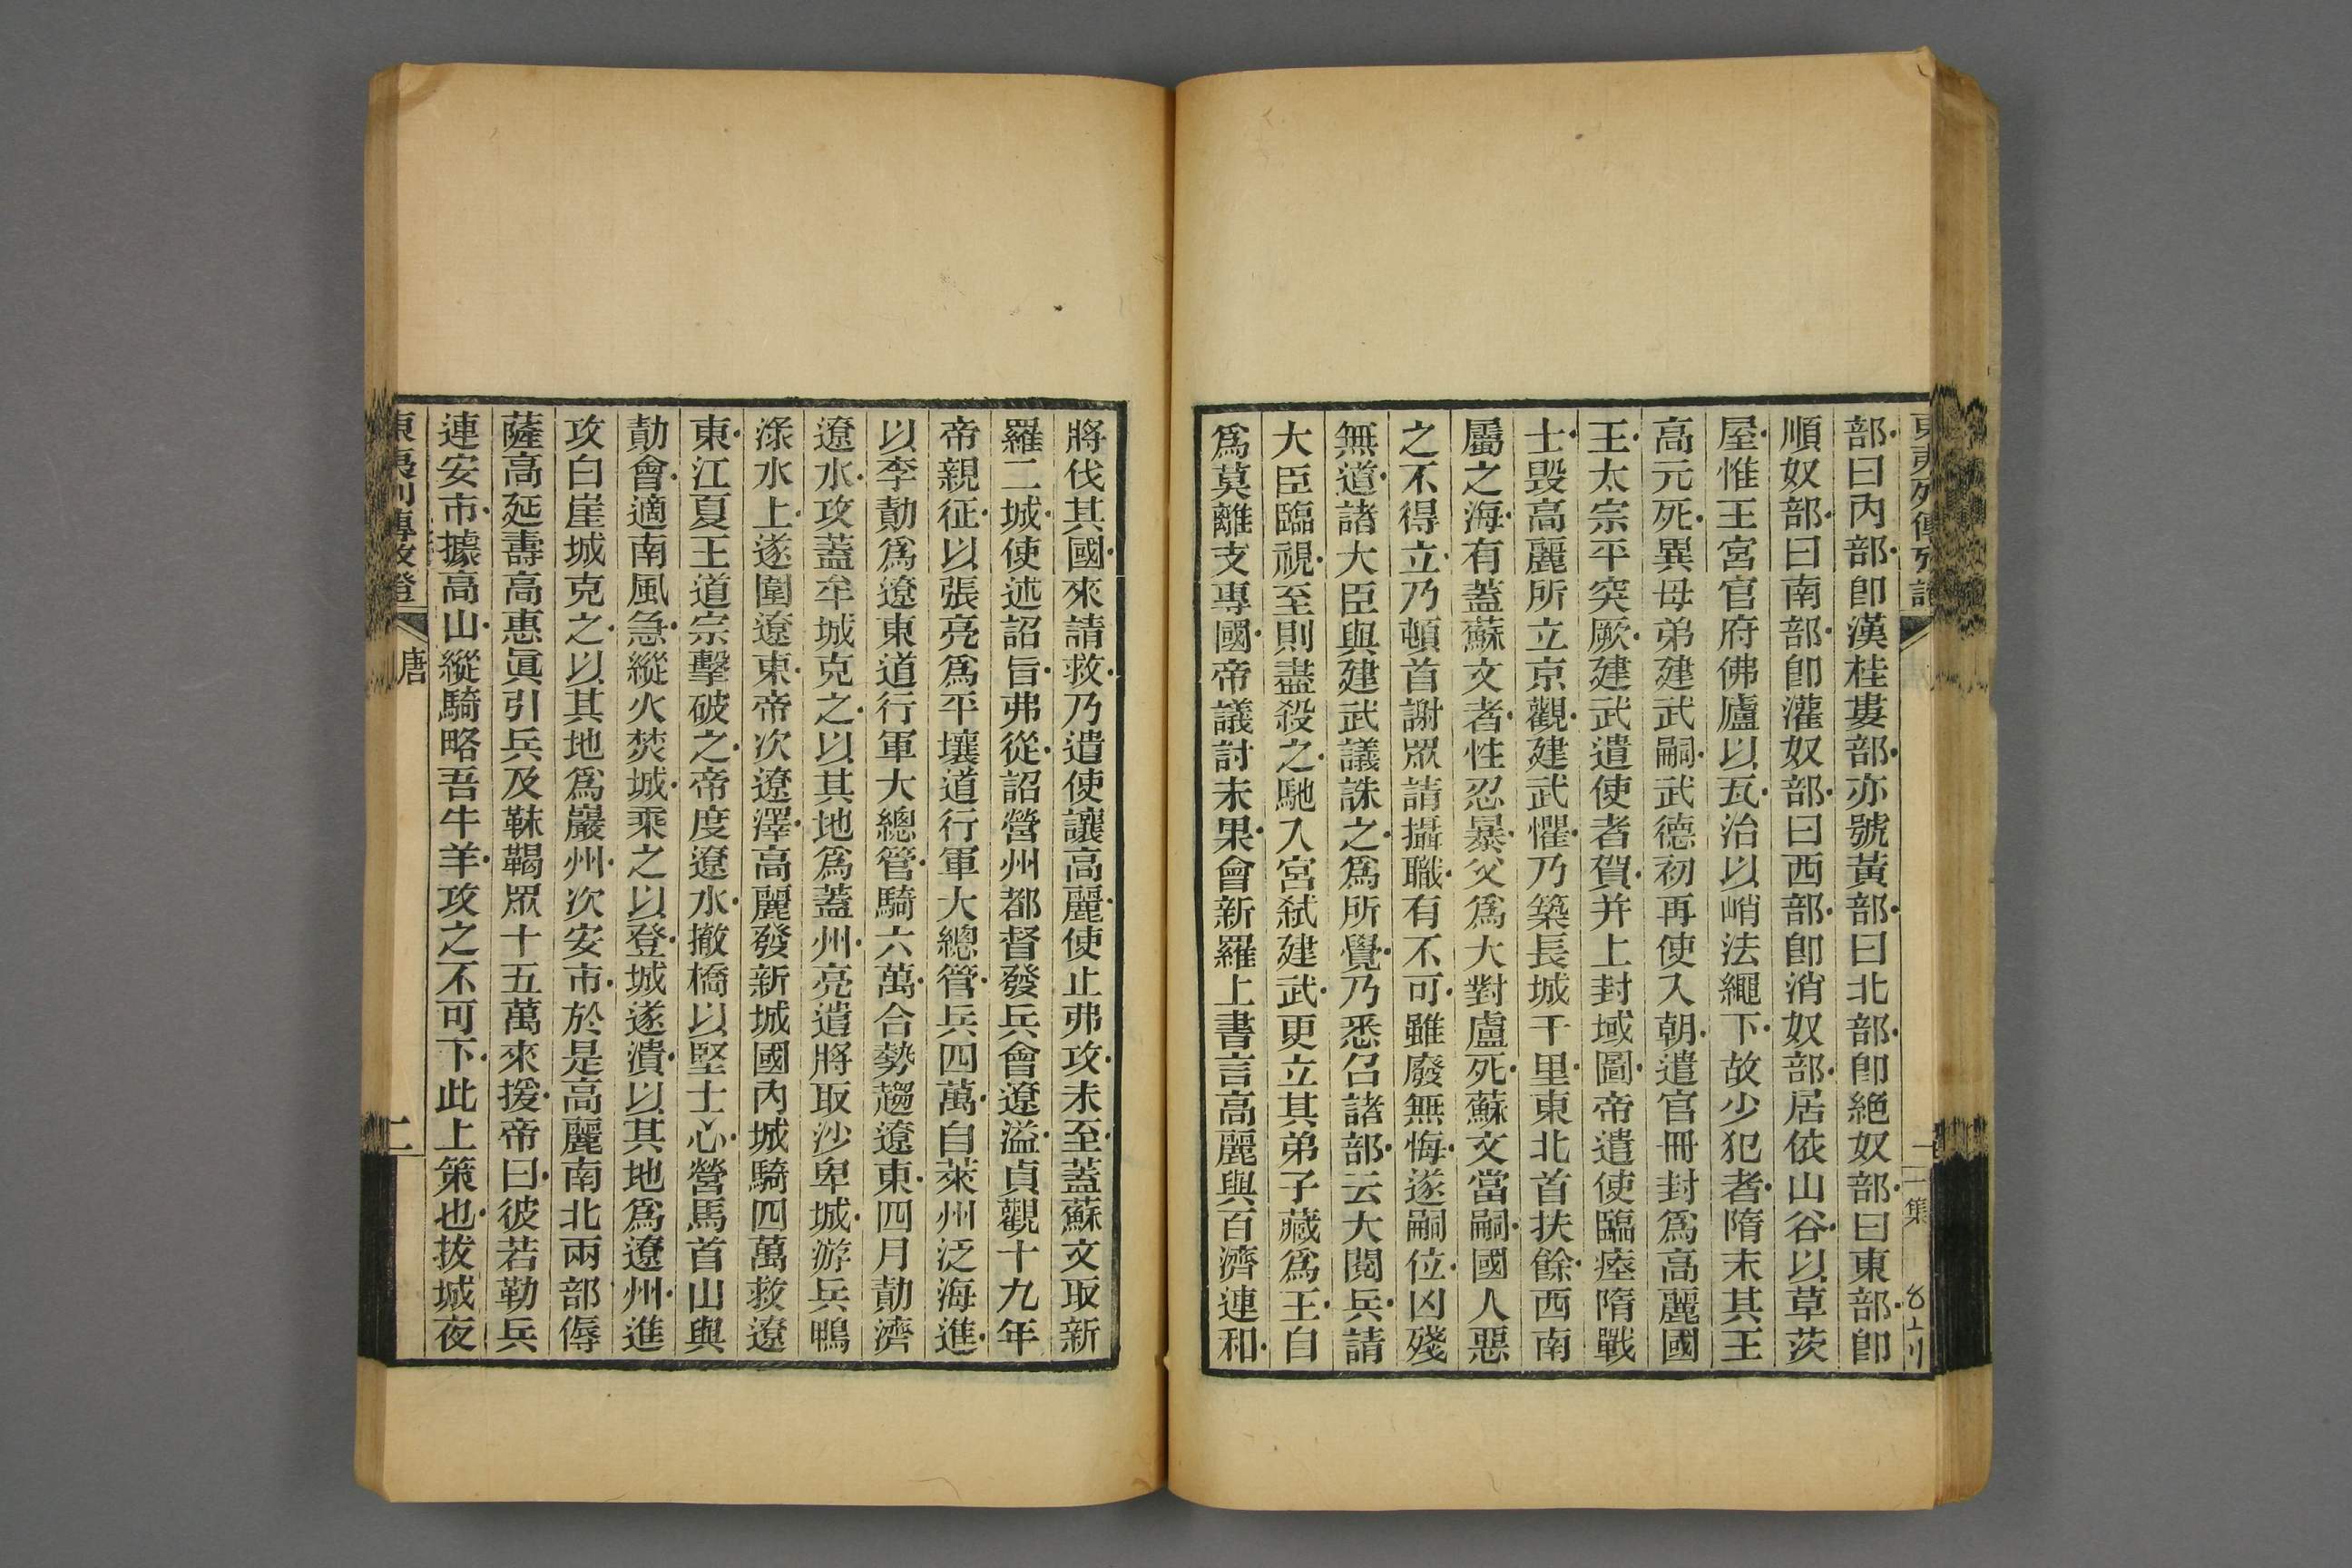 部曰內部卽漢桂婁部亦號黃部曰北部卽絕奴部曰東部卽
順奴部曰南部卽灌奴部曰西部卽消奴部居依山谷以草茨
屋惟王宮官府佛廬以瓦治以峭法繩下故少犯者隋末其王
高元死異母弟建武嗣武德初再使入朝遣官冊封爲高麗國
王太宗平突厥建武遣使者賀并上封域圖帝遣使臨瘞隋戰
士毀高麗所立京觀建武懼乃築長城千里東北首扶餘西南
屬之海有蓋蘇文者性忍暴父爲大對盧死蘇文當嗣國人惡
之不得立乃頓首謝眾請攝職有不可雖廢無悔遂嗣位凶殘
無道諸大臣與建武議誅之爲所覺乃悉召諸部云大閱兵請
大臣臨視至則盡殺之馳入宮弒建武更立其弟子藏爲王自
爲莫離支專國帝議討未果會新羅上書言高麗與百濟連和
將伐其國來請救乃遣使讓高麗使止弗攻未至蓋蘇文取新
羅二城使述詔旨弗從詔營州都督發兵會遼溢貞觀十九年
帝親征以張亮爲平壤道行軍大總管兵四萬自萊州泛海進
以李勣爲遼東道行軍大總管騎六萬合勢趨遼東四月勣濟
遼水攻蓋牟城克之以其地爲蓋州亮遣將取沙卑城游兵鴨
淥水上遂圍遼東帝次遼澤高麗發新城國內城騎四萬救遼
東江夏王道宗擊破之帝度遼水撤橋以堅士心營馬首山與
勣會適南風急縱火焚城乘之以登城遂潰以其地爲遼州進
攻白崖城克之以其地爲巖州次安市於是高麗南北兩部傉
薩高延壽高惠眞引兵及靺鞨眾十五萬來援帝曰彼若勒兵
連安市據高山縱騎略吾牛羊攻之不可下此上策也拔城夜
東夷列傳攷證
唐
二